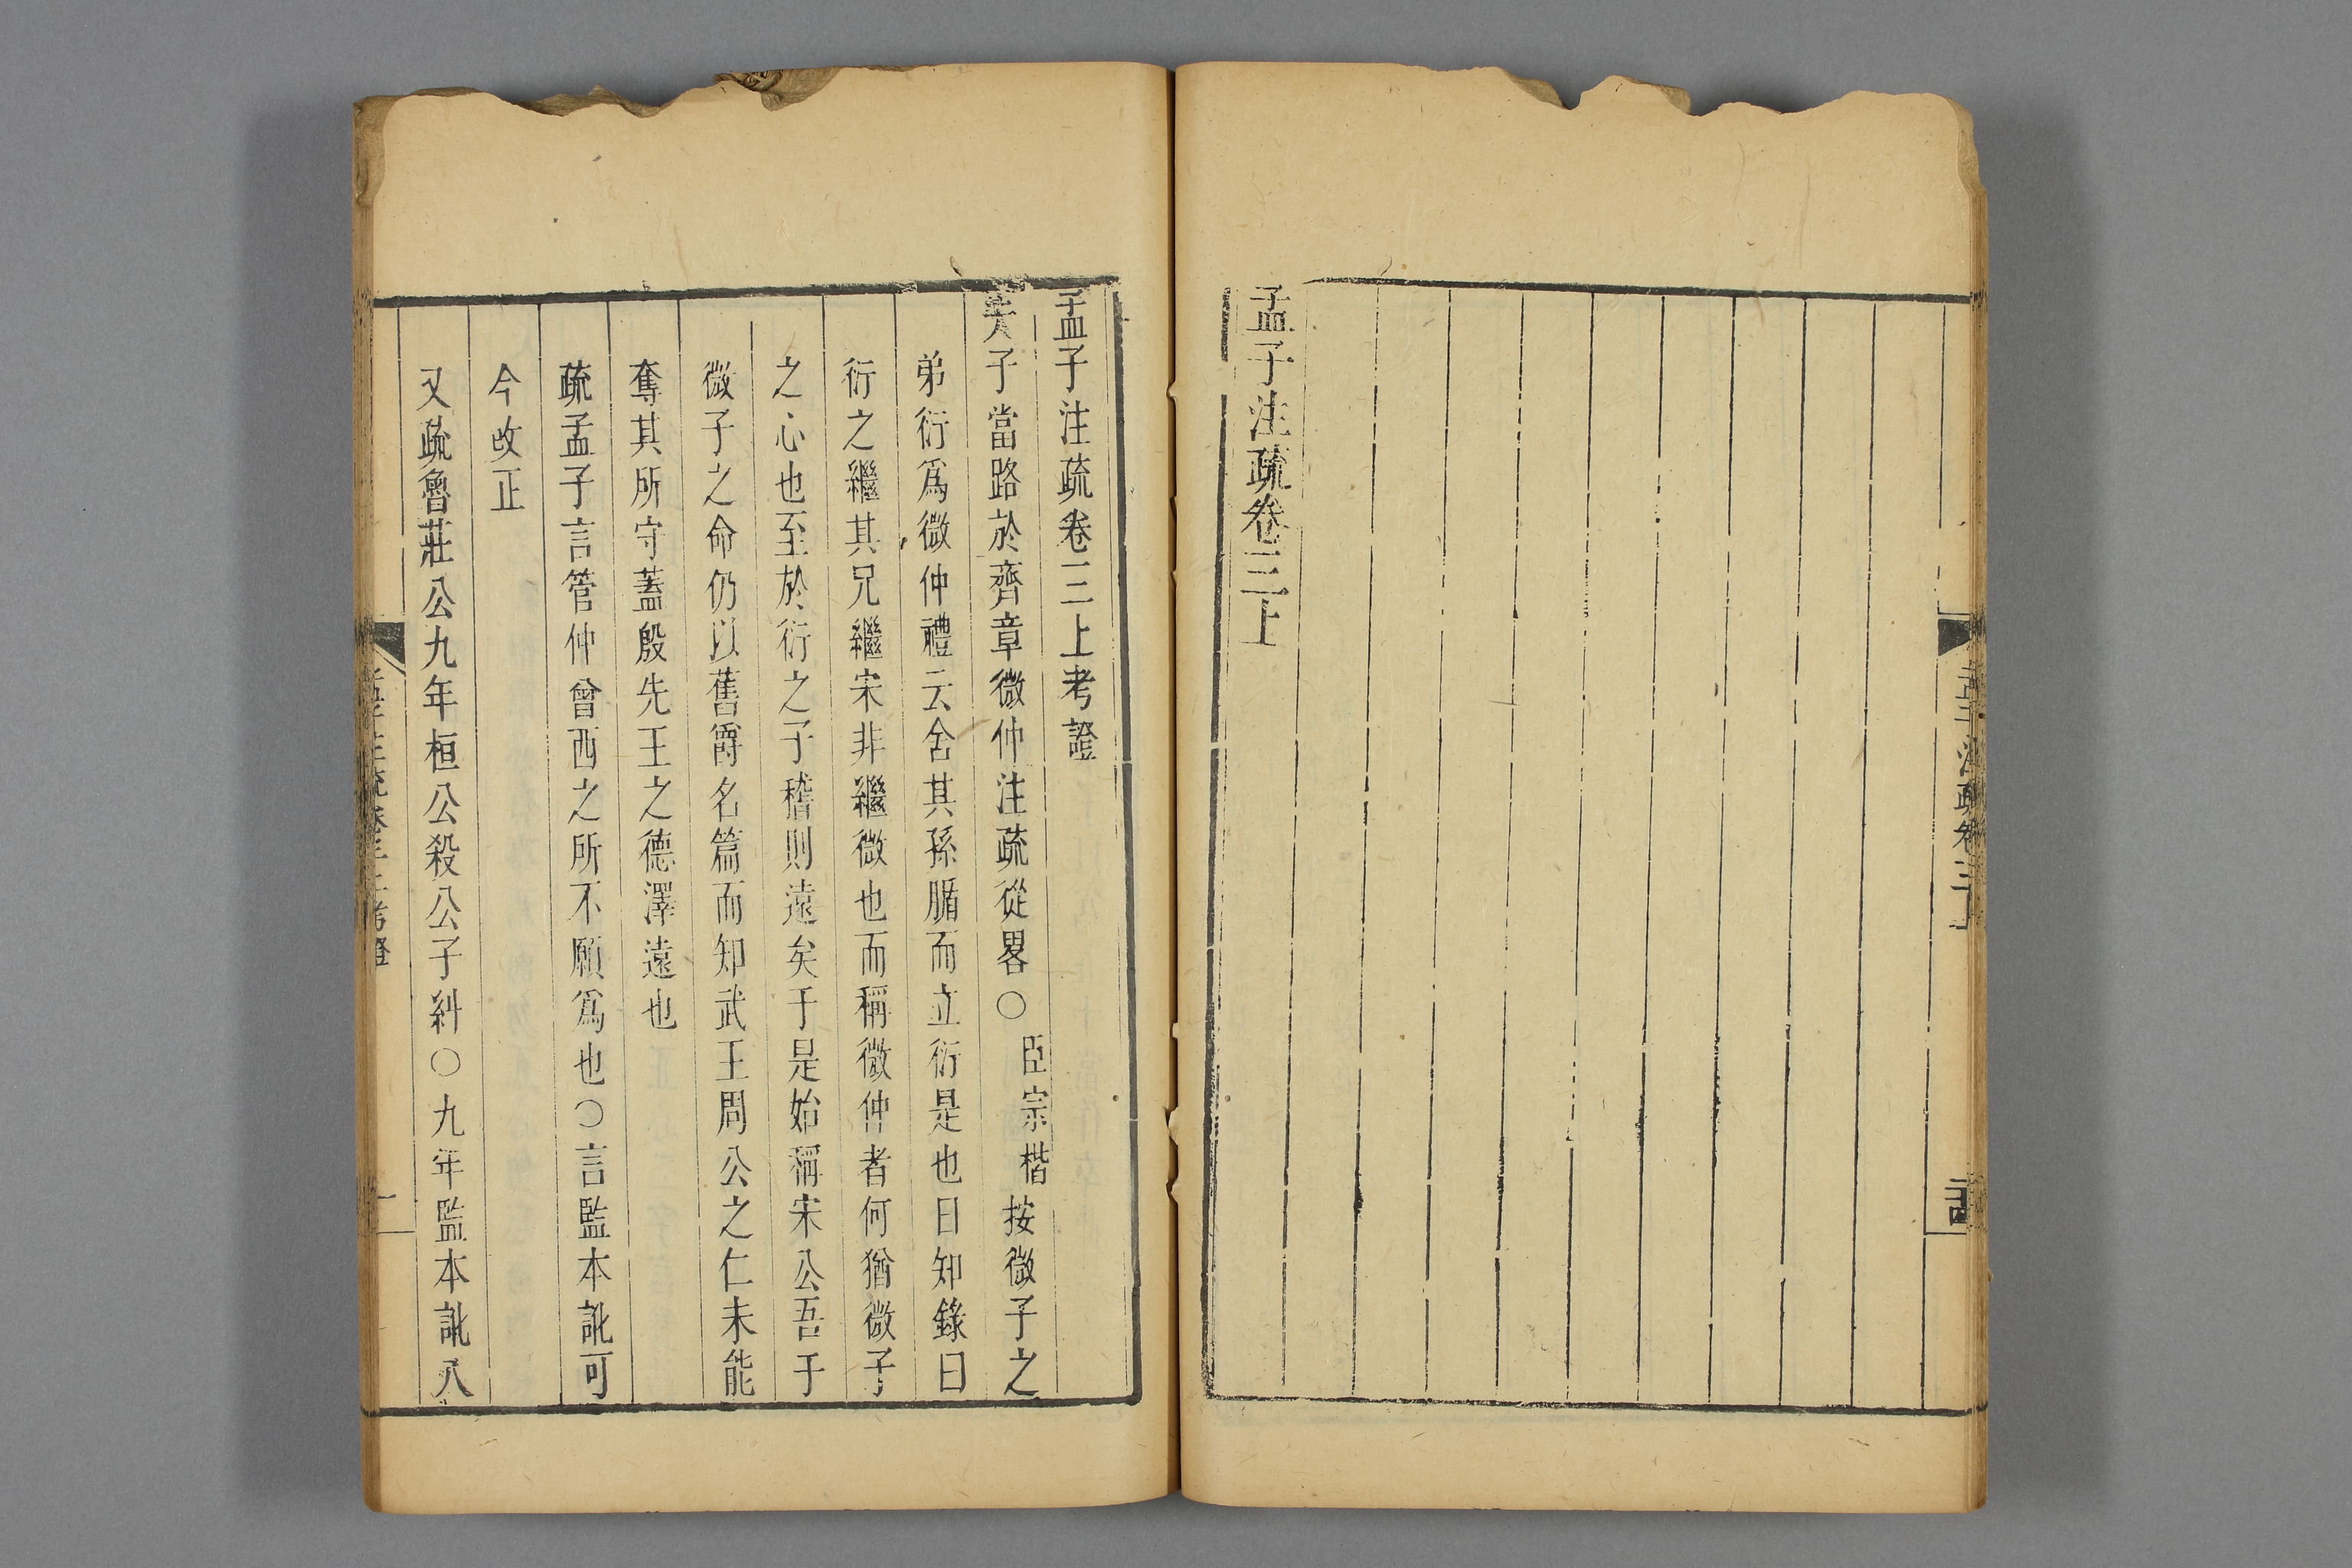 孟子注疏卷三上
孟子注疏卷三上考證
夫子當路於齊章微仲注疏從畧○臣宗楷按微子之
弟衍爲微仲禮云舍其孫腯而立衍是也日知錄曰
衍之繼其兄繼宋非繼微也而稱微仲者何猶微子
之心也至於衍之子稽則遠矣于是始稱宋公吾于
微子之命仍以舊爵名篇而知武王周公之仁未能
奪其所守蓋殷先王之德澤遠也
疏孟子言管仲曾西之所不願爲也○言監本訛可
今改正
又疏魯莊公九年桓公殺公子糾○九年監本訛八